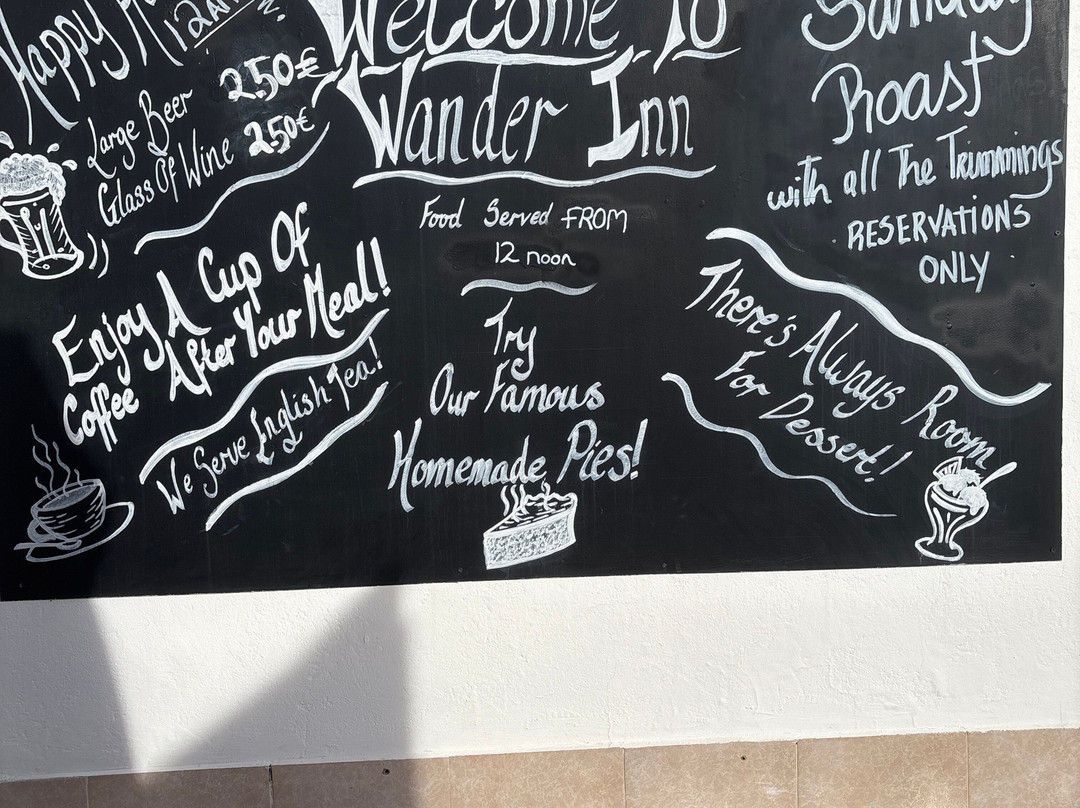 Happy
12
Large Beer 2.50€
Glass Of Wine 2.50€
Enjoy A Cup Of
Coffee After Your Meal!
We Serve English Tea!
Welcome To
Wander Inn
Food Served FROM
12 noon
Try
Our Famous
Homemade Pies!
Sunday
Roast
with all The Trimmings
RESERVATIONS
ONLY
There's Always Room
For Dessert!